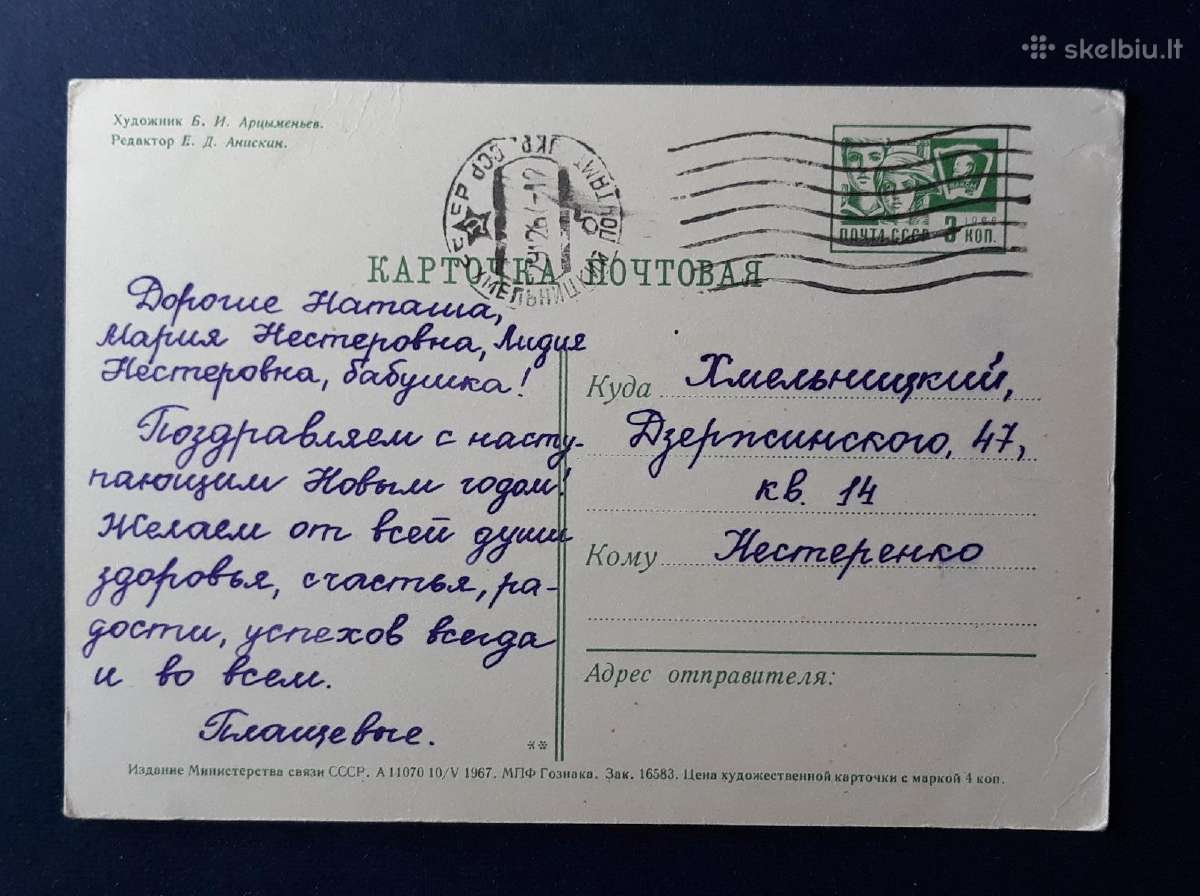 skelbiu.lt
Художник Б. И. Арцыменьев.
Редактор Е. Д. Анискин.
ПОЧТАМТ
ХМЕЛЬНИЦКИЙ
1966
ПОЧТА СССР 3 КОП.
КАРТОЧКА ПОЧТОВАЯ
Дорогие Наташа,
Мария Нестеровна, Лидия
Нестеровна, бабушка!
Поздравляем с насту-
пающим Новым годом!
Желаем от всей души
здоровья, счастья, ра-
дости, успехов всегда
и во всем.
Плащевые.
Куда Хмельницкий,
Дзержинского, 47,
кв. 14
Кому Нестеренко
Адрес отправителя:
**
Издание Министерства связи СССР. А 11070 10/V 1967. МПФ Гознака. Зак. 16583. Цена художественной карточки с маркой 4 коп.